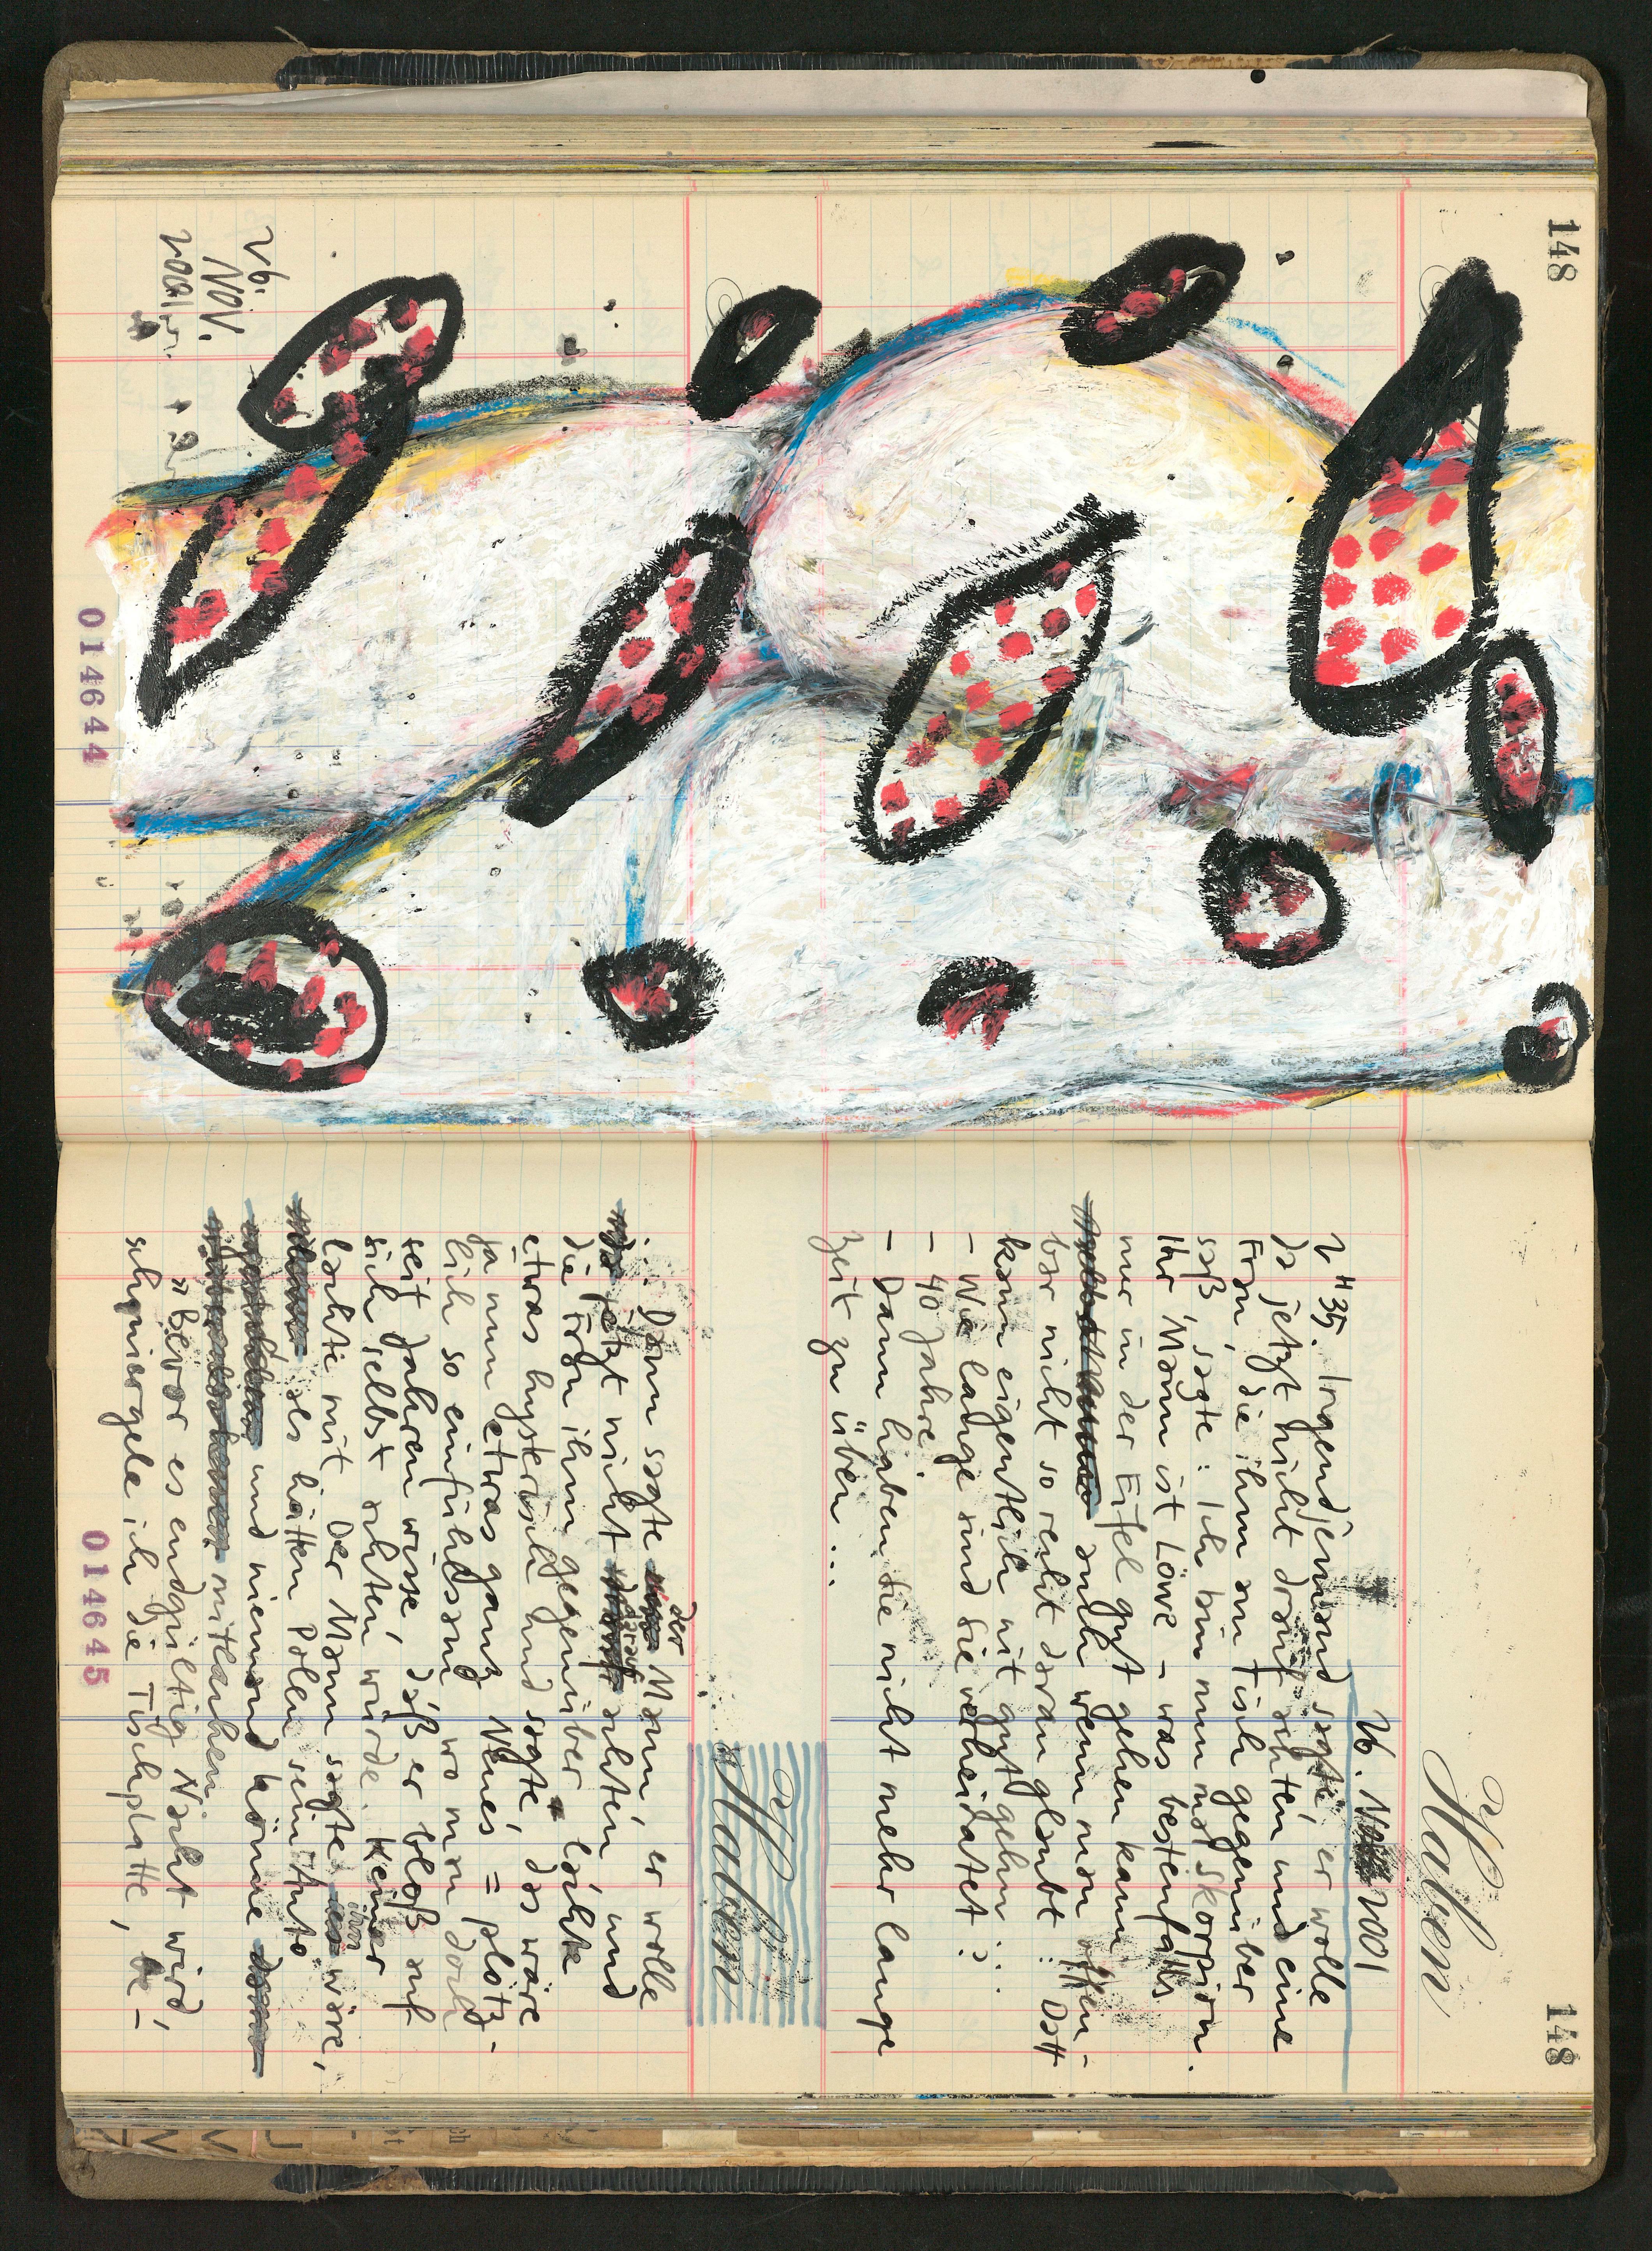 148
26.
Nov.
2001
014644
Haben
148
26. Nov 2001
2"35. Irgendjemand sagte, er wolle
da jetzt nicht drauf achten und eine
Frau, die ihm am Tisch gegenüber
saß, sagte: Ich bin nun mal Skorpion.
Ihr Mann ist Löwe – was bestenfalls
nur in der Eifel gut gehen kann
auch wenn man offen-
bar nicht so recht dran glaubt: Datt
kann eigentlich nit gut gehn...
– Wie lange sind Sie verheiratet?
– 40 Jahre.
– Dann haben Sie nicht mehr lange
Zeit zu üben...
Haben
... Dann sagte der Mann, er wolle
jetzt nicht darauf achten und
die Frau ihm gegenüber lachte
etwas hysterisch und sagte, das wäre
ja nun etwas ganz Neues = plötz-
lich so einfühlsam, wo man doch
seit Jahren wisse, daß er bloß auf
sich selbst achten würde. Keiner
lachte mit. Der Mann sagte ihm wäre,
als hätten Polen sein Auto
und niemand könne
mitlachen.
"Bevor es endgültig Nacht wird,
schmiergele ich die Tischplatte, be-
014645